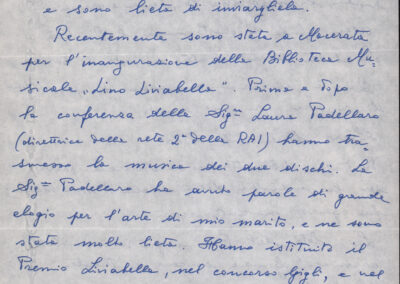 e sono lieta di inviargliela.
Recentemente sono stata a Macerata
per l'inaugurazione della Biblioteca Mu-
sicale „Lino Liviabella". Prima e dopo
la conferenza della Sig.ra Laura Padellaro
(direttrice della rete 2ª della RAI) hanno tra-
smesso la musica dei due dischi. La
Sig.ra Padellaro ha avuto parole di grande
elogio per l'arte di mio marito, e ne sono
stata molto lieta. Hanno istituito il
Premio Liviabella, nel concorso Gigli, e nel